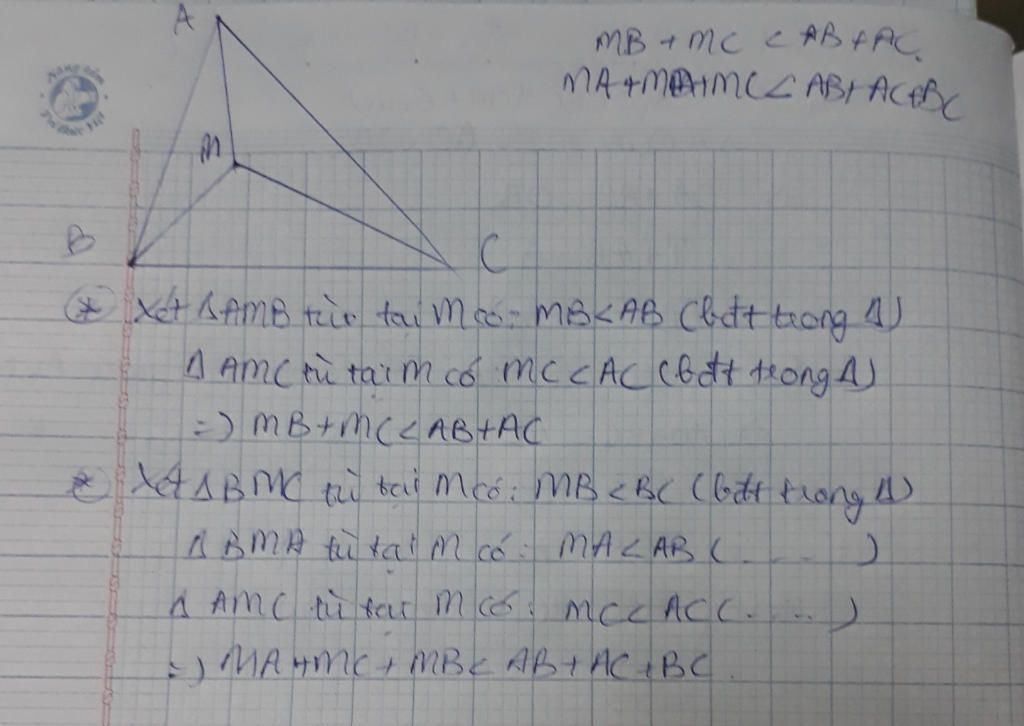 A
MB + MC < AB + AC.
MA + MB + MC < AB + AC + BC
M
B
C
* Xét Δ AMB tù tại M có: MB < AB (bđt trong Δ)
Δ AMC tù tại M có MC < AC (bđt trong Δ)
=) MB + MC < AB + AC
* Xét Δ BMC tù tại M có: MB < BC (bđt trong Δ)
Δ BMA tù tại M có: MA < AB (.....)
Δ AMC tù tại M có: MC < AC (.....)
=) MA + MC + MB < AB + AC + BC.